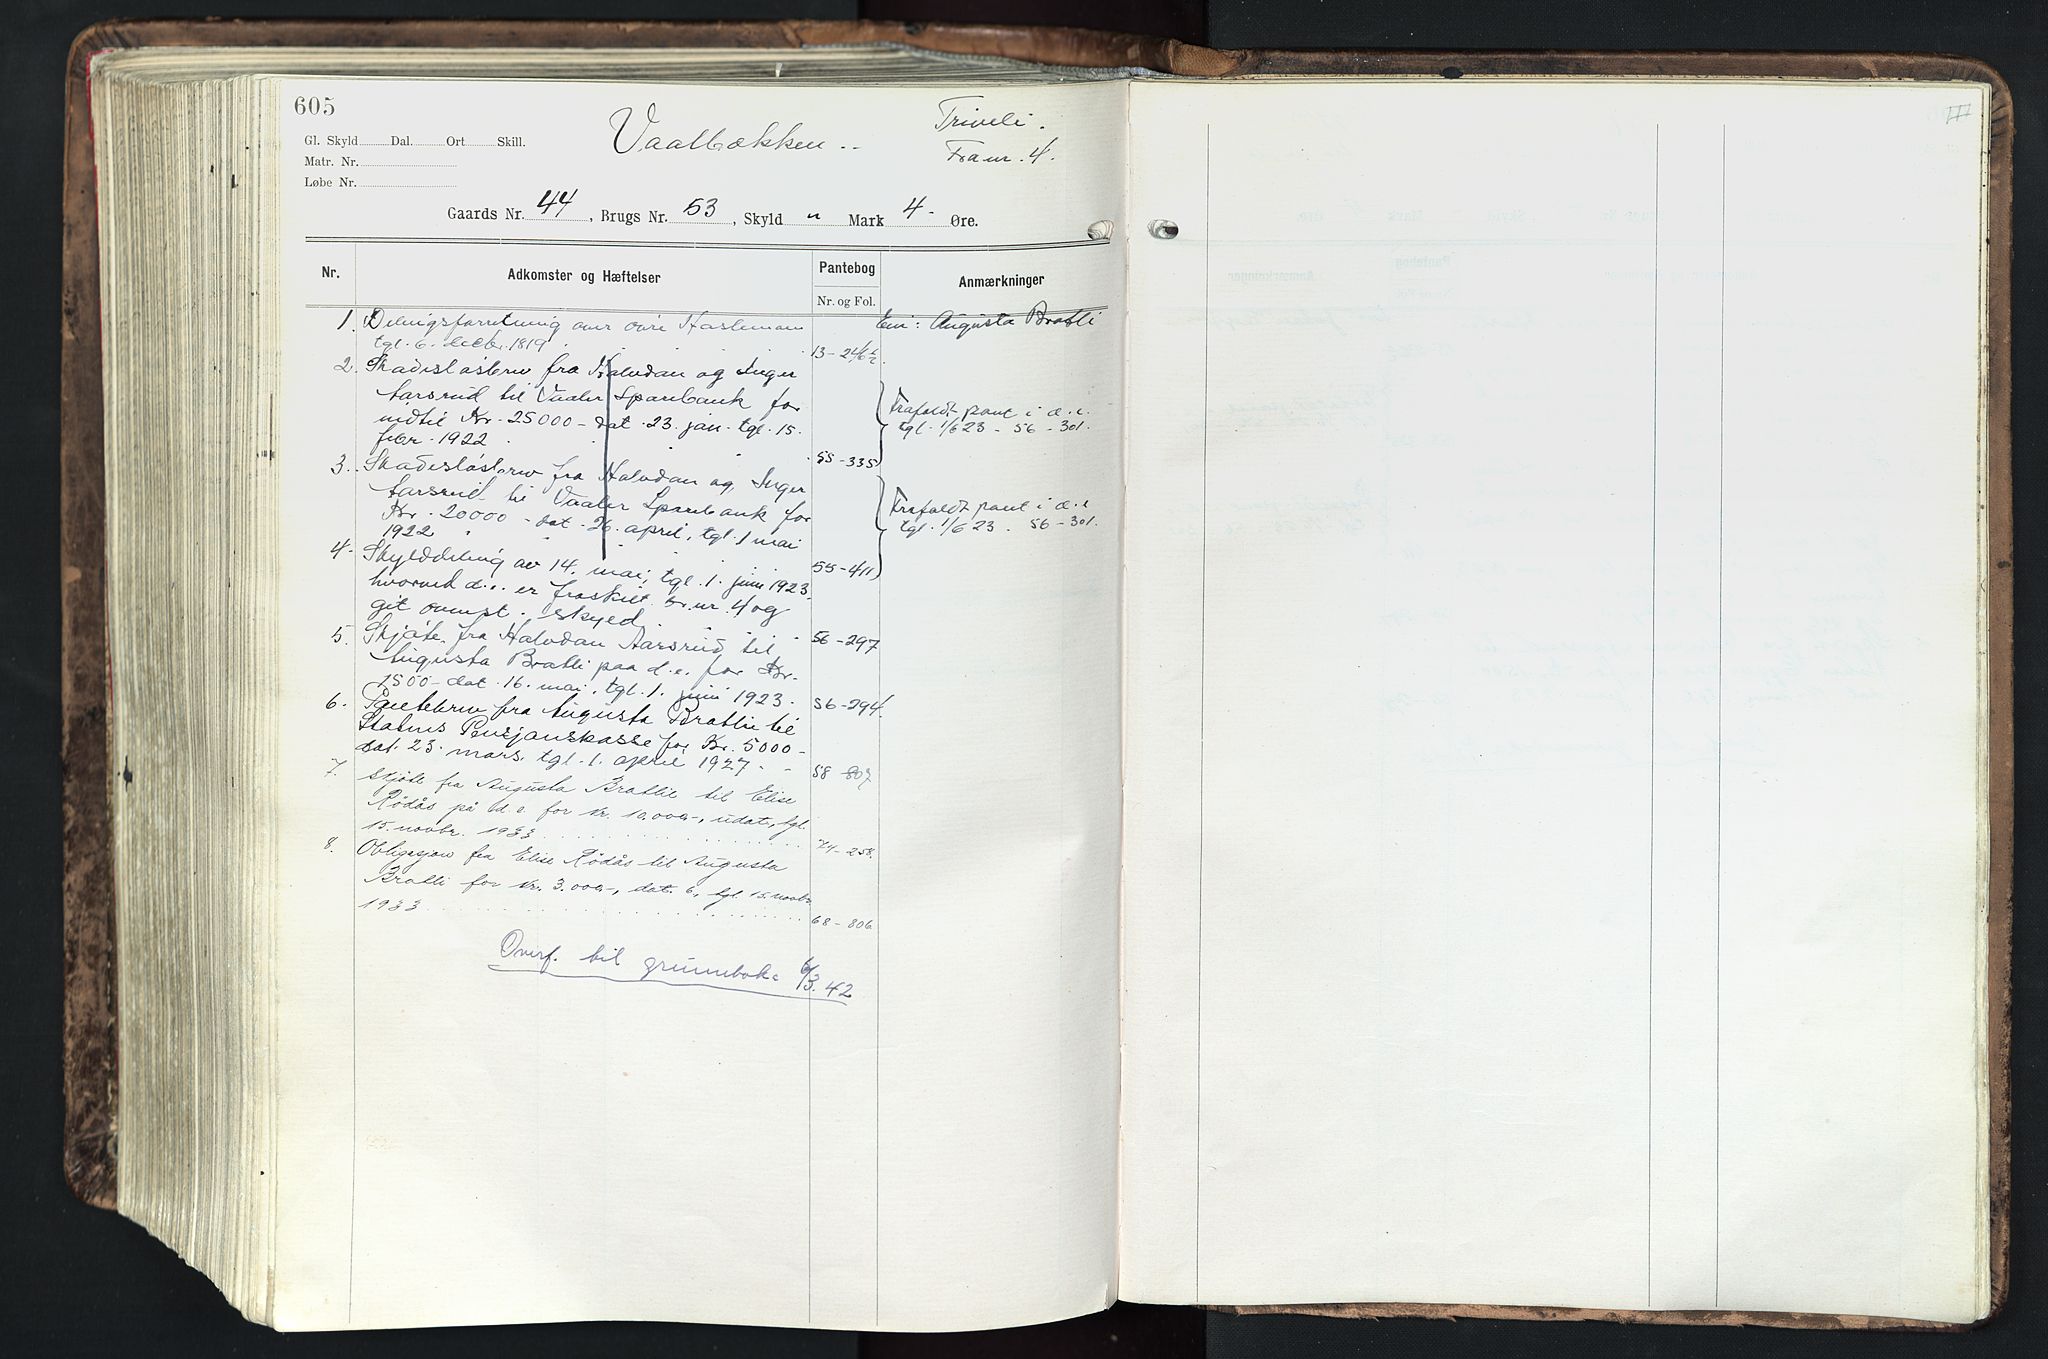 605
Vaalbækken
Triveli.
Fra nr. 4.
Gl. Skyld Dal. Ort Skill.
Matr. Nr.
Løbe Nr.
Gaards Nr. 44, Brugs Nr. 53, Skyld " Mark 4 - Øre.
Nr. Adkomster og Hæftelser Pantebog Anmærkninger
Nr. og Fol.
1. Delingsforretning over øvre Haslemoen Eier: Augusta Bratli
tgl. 6. decbr. 1819 13-
2. Skadesløsbrev fra Halvdan og Inger
Aarsrud til Vaaler Sparebank for
indtil Kr. 25000 - dat. 23. jan. tgl. 15.
febr. 1922 55-335
Frafaldt pant i d.e.
tgl. 1/6 23 - 56 - 301.
3. Skadesløsbrev fra Halvdan og Inger
Aarsrud til Vaaler Sparebank for
Kr. 20000 - dat. 26. april, tgl. 1 mai
1922 55-411
Frafaldt pant i d.e
tgl. 1/6 23. 56-301.
4. Skylddeling av 14. mai, tgl. 1. juni 1923
hvorved d.e. er fraskilt br.nr. 4 og
git ovenst. skyld 56-297
5. Skjøte fra Halvdan Aarsrud til
Augusta Bratli paa d.e. for Kr.
1500 - dat. 16. mai, tgl. 1. juni 1923. 56-294.
6. Pantebrev fra Augusta Bratlie til
Statens Pensjonskasse for Kr. 5000 -
dat. 23. mars, tgl. 1. april 1927 - - 58-807
7. Skjøte fra Augusta Bratlie til Elise
Rødås på d.e. for kr. 10.000-, udat., tgl.
15. novbr. 1933 74-258.
8. Obligasjon fra Elise Rødås til Augusta
Bratli for kr. 3.000-, dat. 6., tgl. 15. novbr.
1933 68-806
Overf. til grunnboka 6/3.42